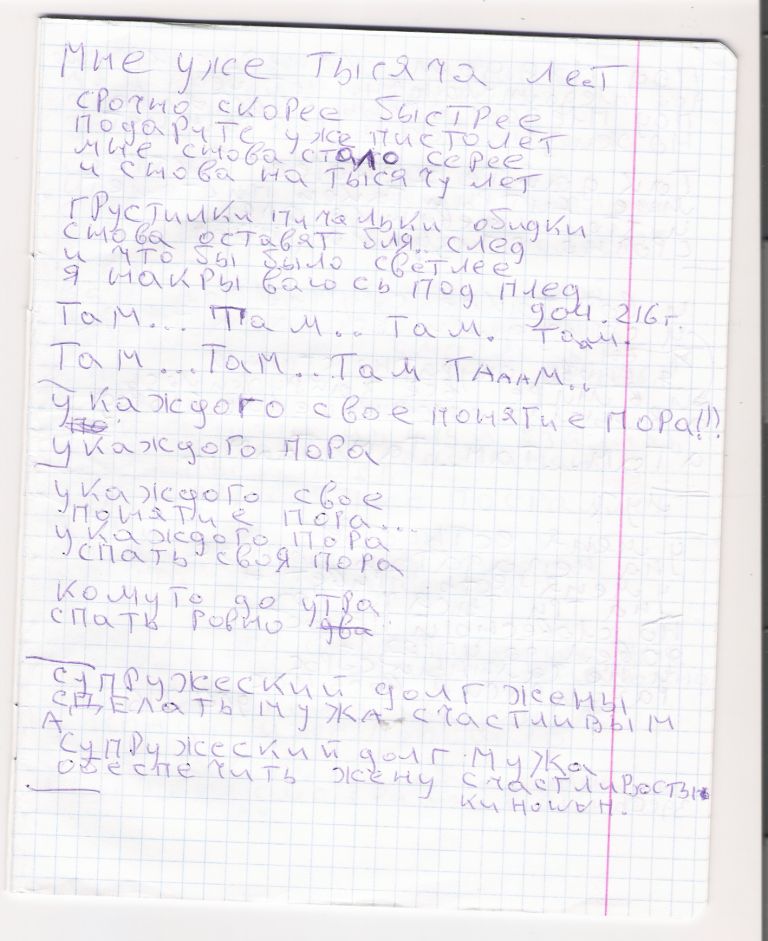 Мне уже тысяча лет
срочно скорее быстрее
подарите уже пистолет
мне снова стало серее
и снова на тысячу лет
грустилки пичальки обидки
снова оставят бля.. след
и что бы было светлее
я накрываюсь под плед
дом. 216 г.
Там... Там.. Там. Таам.
Там...Там..Там ТАААМ..
у каждого свое понятие пора!!!
по
у каждого пора
у каждого свое
понятие пора...
у каждого пора
спать своя пора
кому то до утра
спать ровно два
супружеский долг жены
сделать мужа счастливым
А
супружеский долг мужа
обеспечить жену счастли